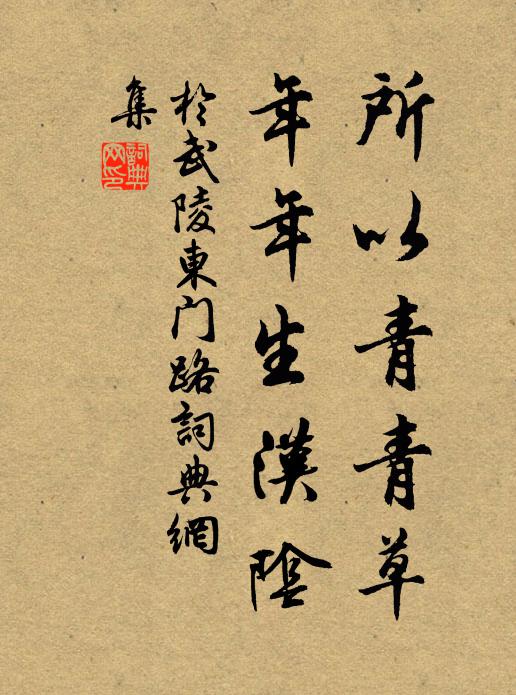 所以青青草
年年生漢陰
於武陵東門路詞典網
集
詞典網印